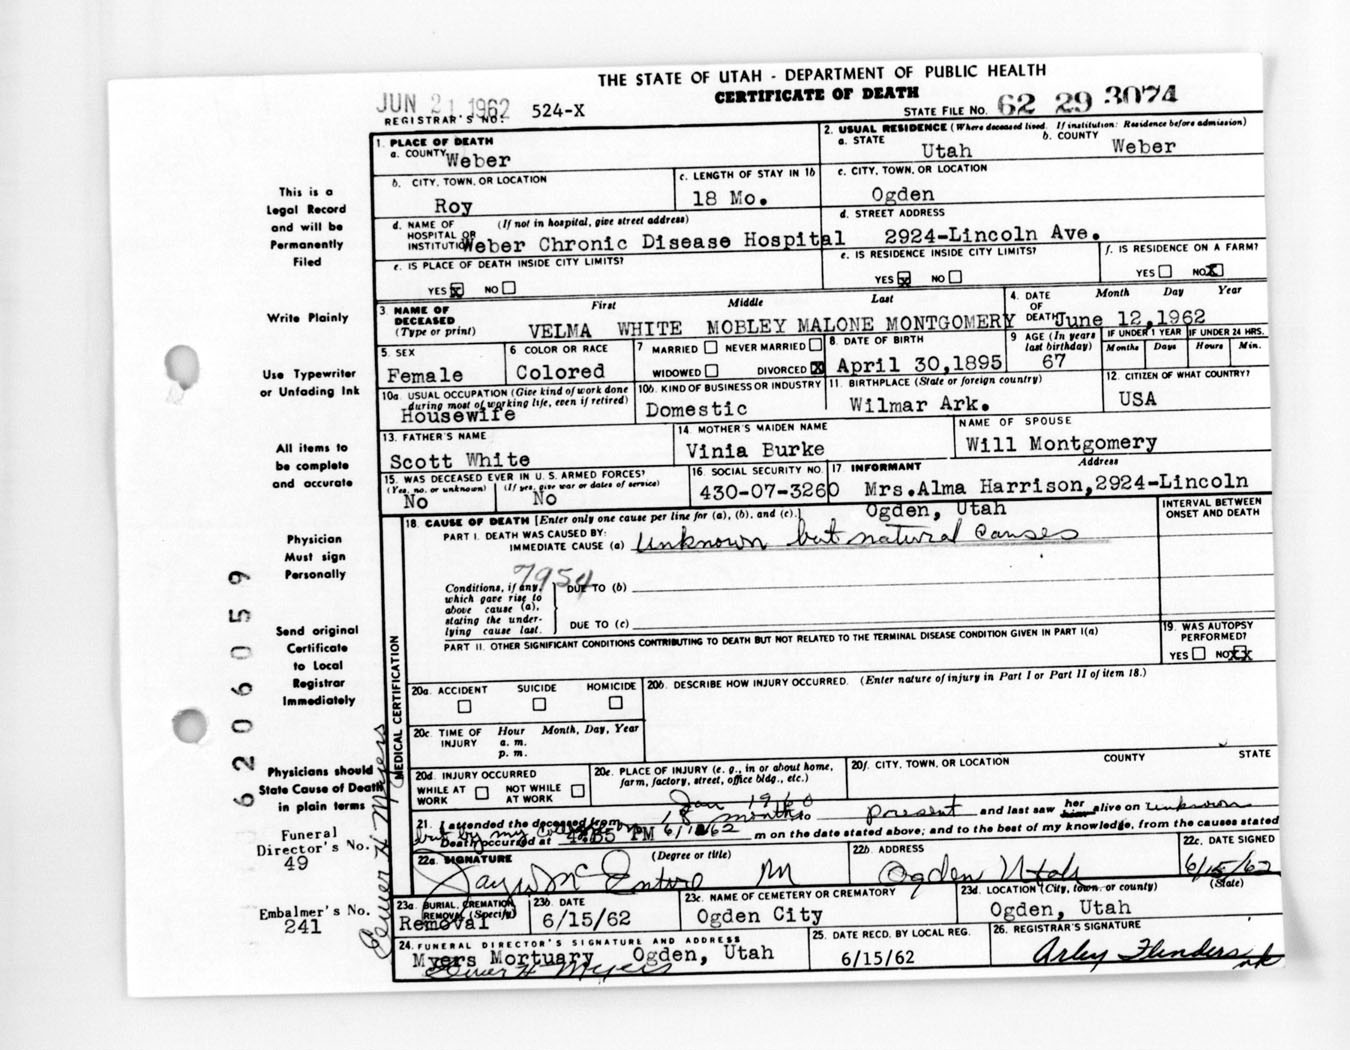 THE STATE OF UTAH - DEPARTMENT OF PUBLIC HEALTH
CERTIFICATE OF DEATH
JUN 21 1962
REGISTRAR'S NO. 524-X
STATE FILE NO. 62 29 3074
This is a
Legal Record
and will be
Permanently
Filed
Write Plainly
Use Typewriter
or Unfading Ink
All items to
be complete
and accurate
Physician
Must sign
Personally
Send original
Certificate
to Local
Registrar
Immediately
Physicians should
State Cause of Death
in plain terms
Funeral
Director's No.
49
Embalmer's No.
241
6206059
Elmer H Myers
1. PLACE OF DEATH
a. COUNTY Weber
2. USUAL RESIDENCE (Where deceased lived. If institution: Residence before admission)
a. STATE Utah
b. COUNTY Weber
b. CITY, TOWN, OR LOCATION
Roy
c. LENGTH OF STAY IN 1b
18 Mo.
c. CITY, TOWN, OR LOCATION
Ogden
d. NAME OF HOSPITAL OR INSTITUTION (If not in hospital, give street address)
Weber Chronic Disease Hospital
d. STREET ADDRESS
2924-Lincoln Ave.
e. IS PLACE OF DEATH INSIDE CITY LIMITS?
YES X NO
e. IS RESIDENCE INSIDE CITY LIMITS?
YES X NO
f. IS RESIDENCE ON A FARM?
YES NO X
3. NAME OF DECEASED (Type or print)
First Middle Last
VELMA WHITE MOBLEY MALONE MONTGOMERY
4. DATE OF DEATH
Month Day Year
June 12,1962
5. SEX
Female
6 COLOR OR RACE
Colored
7 MARRIED NEVER MARRIED
WIDOWED DIVORCED X
8. DATE OF BIRTH
April 30,1895
9 AGE (In years last birthday)
67
IF UNDER 1 YEAR
Months Days
IF UNDER 24 HRS.
Hours Min.
10a. USUAL OCCUPATION (Give kind of work done during most of working life, even if retired)
Housewife
10b. KIND OF BUSINESS OR INDUSTRY
Domestic
11. BIRTHPLACE (State or foreign country)
Wilmar Ark.
12. CITIZEN OF WHAT COUNTRY?
USA
13. FATHER'S NAME
Scott White
14. MOTHER'S MAIDEN NAME
Vinia Burke
NAME OF SPOUSE
Will Montgomery
15. WAS DECEASED EVER IN U.S. ARMED FORCES?
(Yes, no, or unknown) (If yes, give war or dates of service)
No No
16. SOCIAL SECURITY NO.
430-07-3260
17. INFORMANT Address
Mrs.Alma Harrison,2924-Lincoln
Ogden, Utah
MEDICAL CERTIFICATION
18. CAUSE OF DEATH [Enter only one cause per line for (a), (b), and (c).]
INTERVAL BETWEEN ONSET AND DEATH
PART I. DEATH WAS CAUSED BY:
IMMEDIATE CAUSE (a) Unknown but natural causes
7954
Conditions, if any, which gave rise to above cause (a), stating the underlying cause last.
DUE TO (b)
DUE TO (c)
PART II. OTHER SIGNIFICANT CONDITIONS CONTRIBUTING TO DEATH BUT NOT RELATED TO THE TERMINAL DISEASE CONDITION GIVEN IN PART I(a)
19. WAS AUTOPSY PERFORMED?
YES NO XX
20a. ACCIDENT SUICIDE HOMICIDE
20b. DESCRIBE HOW INJURY OCCURRED. (Enter nature of injury in Part I or Part II of item 18.)
20c. TIME OF INJURY
Hour Month, Day, Year
a. m.
p. m.
20d. INJURY OCCURRED
WHILE AT WORK NOT WHILE AT WORK
20e. PLACE OF INJURY (e. g., in or about home, farm, factory, street, office bldg., etc.)
20f. CITY, TOWN, OR LOCATION COUNTY STATE
Jan 1960
21. I attended the deceased from 18 months to present and last saw her him alive on unknown
but by my
Death occurred at PM 6/12/62 m on the date stated above; and to the best of my knowledge, from the causes stated
22a. SIGNATURE (Degree or title)
22b. ADDRESS
Ogden Utah
22c. DATE SIGNED
6/15/62
23a. BURIAL, CREMATION, REMOVAL (Specify)
Removal
23b. DATE
6/15/62
23c. NAME OF CEMETERY OR CREMATORY
Ogden City
23d. LOCATION (City, town, or county) (State)
Ogden, Utah
24. FUNERAL DIRECTOR'S SIGNATURE AND ADDRESS
Myers Mortuary Ogden, Utah
Elmer H Myers
25. DATE RECD. BY LOCAL REG.
6/15/62
26. REGISTRAR'S SIGNATURE
Arley Flinders